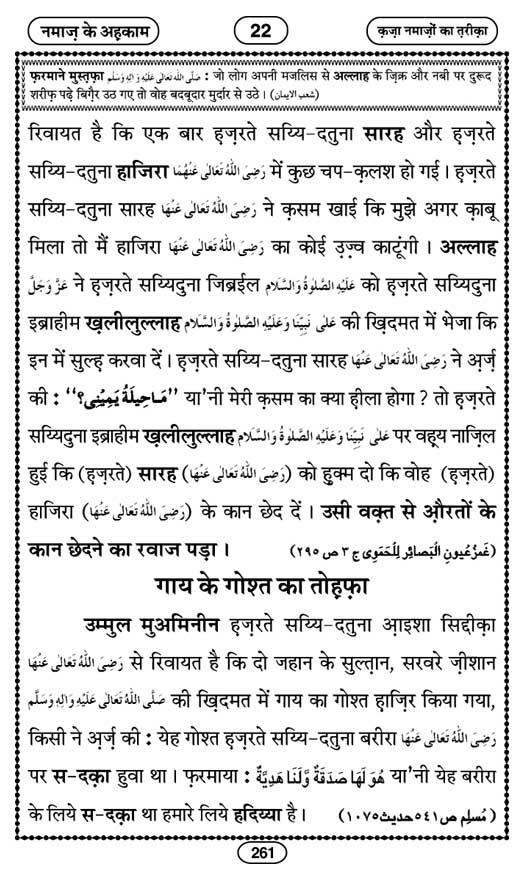 नमाज़ के अह़काम
22
क़ज़ा नमाज़ों का त़रीक़ा
फ़रमाने मुस्त़फ़ा صَلَّى اللّٰهُ تَعَالٰى عَلَيْهِ وَاٰلِهٖ وَسَلَّم : जो लोग अपनी मजलिस से अल्लाह के ज़िक्र और नबी पर दुरूद
शरीफ़ पढ़े बिग़ैर उठ गए तो वोह बदबूदार मुर्दार से उठे । (شعب الایمان)
रिवायत है कि एक बार हज़रते सय्यि-दतुना सारह और हज़रते
सय्यि-दतुना हाजिरा رَضِیَ اللّٰهُ تَعَالٰی عَنْهُمَا में कुछ चप-क़लश हो गई । हज़रते
सय्यि-दतुना सारह رَضِیَ اللّٰهُ تَعَالٰی عَنْهَا ने क़सम खाई कि मुझे अगर क़ाबू
मिला तो मैं हाजिरा رَضِیَ اللّٰهُ تَعَالٰی عَنْهَا का कोई उ़ज़्व काटूंगी । अल्लाह
عَزَّ وَجَلَّ ने हज़रते सय्यिदुना जिब्रईल عَلَيْهِ الصَّلٰوةُ وَالسَّلَام को हज़रते सय्यिदुना
इब्राहीम ख़लीलुल्लाह عَلٰی نَبِیِّنَا وَعَلَيْهِ الصَّلٰوةُ وَالسَّلَام की ख़िदमत में भेजा कि
इन में सुल्ह़ करवा दें । हज़रते सय्यि-दतुना सारह رَضِیَ اللّٰهُ تَعَالٰی عَنْهَا ने अ़र्ज़
की : “مَاحِيلَةُ يَمِيْنِی؟” या'नी मेरी क़सम का क्या ह़ीला होगा ? तो हज़रते
सय्यिदुना इब्राहीम ख़लीलुल्लाह عَلٰی نَبِیِّنَا وَعَلَيْهِ الصَّلٰوةُ وَالسَّلَام पर वह़्य नाज़िल
हुई कि (हज़रते) सारह (رَضِیَ اللّٰهُ تَعَالٰی عَنْهَا) को हुक्म दो कि वोह (हज़रते)
हाजिरा (رَضِیَ اللّٰهُ تَعَالٰی عَنْهَا) के कान छेद दें । उसी वक़्त से औ़रतों के
कान छेदने का रवाज पड़ा । (غَمزُ عيون الْبَصائر لِلْحَمَوِی ج ٣ ص ٢٩٥)
गाय के गोश्त का तोह़फ़ा
उम्मुल मुअमिनीन हज़रते सय्यि-दतुना आ़इशा सिद्दीक़ा
رَضِیَ اللّٰهُ تَعَالٰی عَنْهَا से रिवायत है कि दो जहान के सुल्त़ान, सरवरे ज़ीशान
صَلَّى اللّٰهُ تَعَالٰى عَلَيْهِ وَاٰلِهٖ وَسَلَّم की ख़िदमत में गाय का गोश्त ह़ाज़िर किया गया,
किसी ने अ़र्ज़ की : येह गोश्त हज़रते सय्यि-दतुना बरीरा رَضِیَ اللّٰهُ تَعَالٰی عَنْهَا
पर स-दक़ा हुवा था । फ़रमाया : هُوَ لَهَا صَدَقَةٌ وَّلَنَا هَدِيَّةٌ या'नी येह बरीरा
के लिये स-दक़ा था हमारे लिये हदिय्या है । (مُسلِم ص ٥٤١ حديث ١٠٧٥)
261